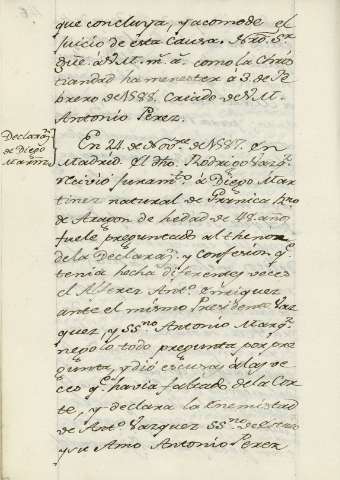 que concluya, y acomode el
juicio de esta Causa. Nrō. Sr.
gūe. á V.M. m. a. como la Cris
tiandad ha menester á 3. de Fe
brero de 1588. Criado de V.M.
Antonio Perez.
Declaraⁿ.
de Diego
Martinz.
En 24. de Novre. de 1587. en
Madrid el dho. Rodrigo Vazqz.
recivió juramto. á Diego Mar
tinez natural de
de Aragon de hedad de 48. años
fuele preguntado al thenor
de la Declaraⁿ. y Confesion q.
tenia hecha diferentes veces
el Alferez Anto. Enriquez
ante el mismo Presidente Vaz
quez, y SSno. Antonio Marqz.
nególo todo pregunta por pre
gunta, y dió escusas á las ve
ces q. havia faltado de la Cor
te, y declara la enemistad
de Anto. Vazquez SSno. de
y su Amo Antonio Perez